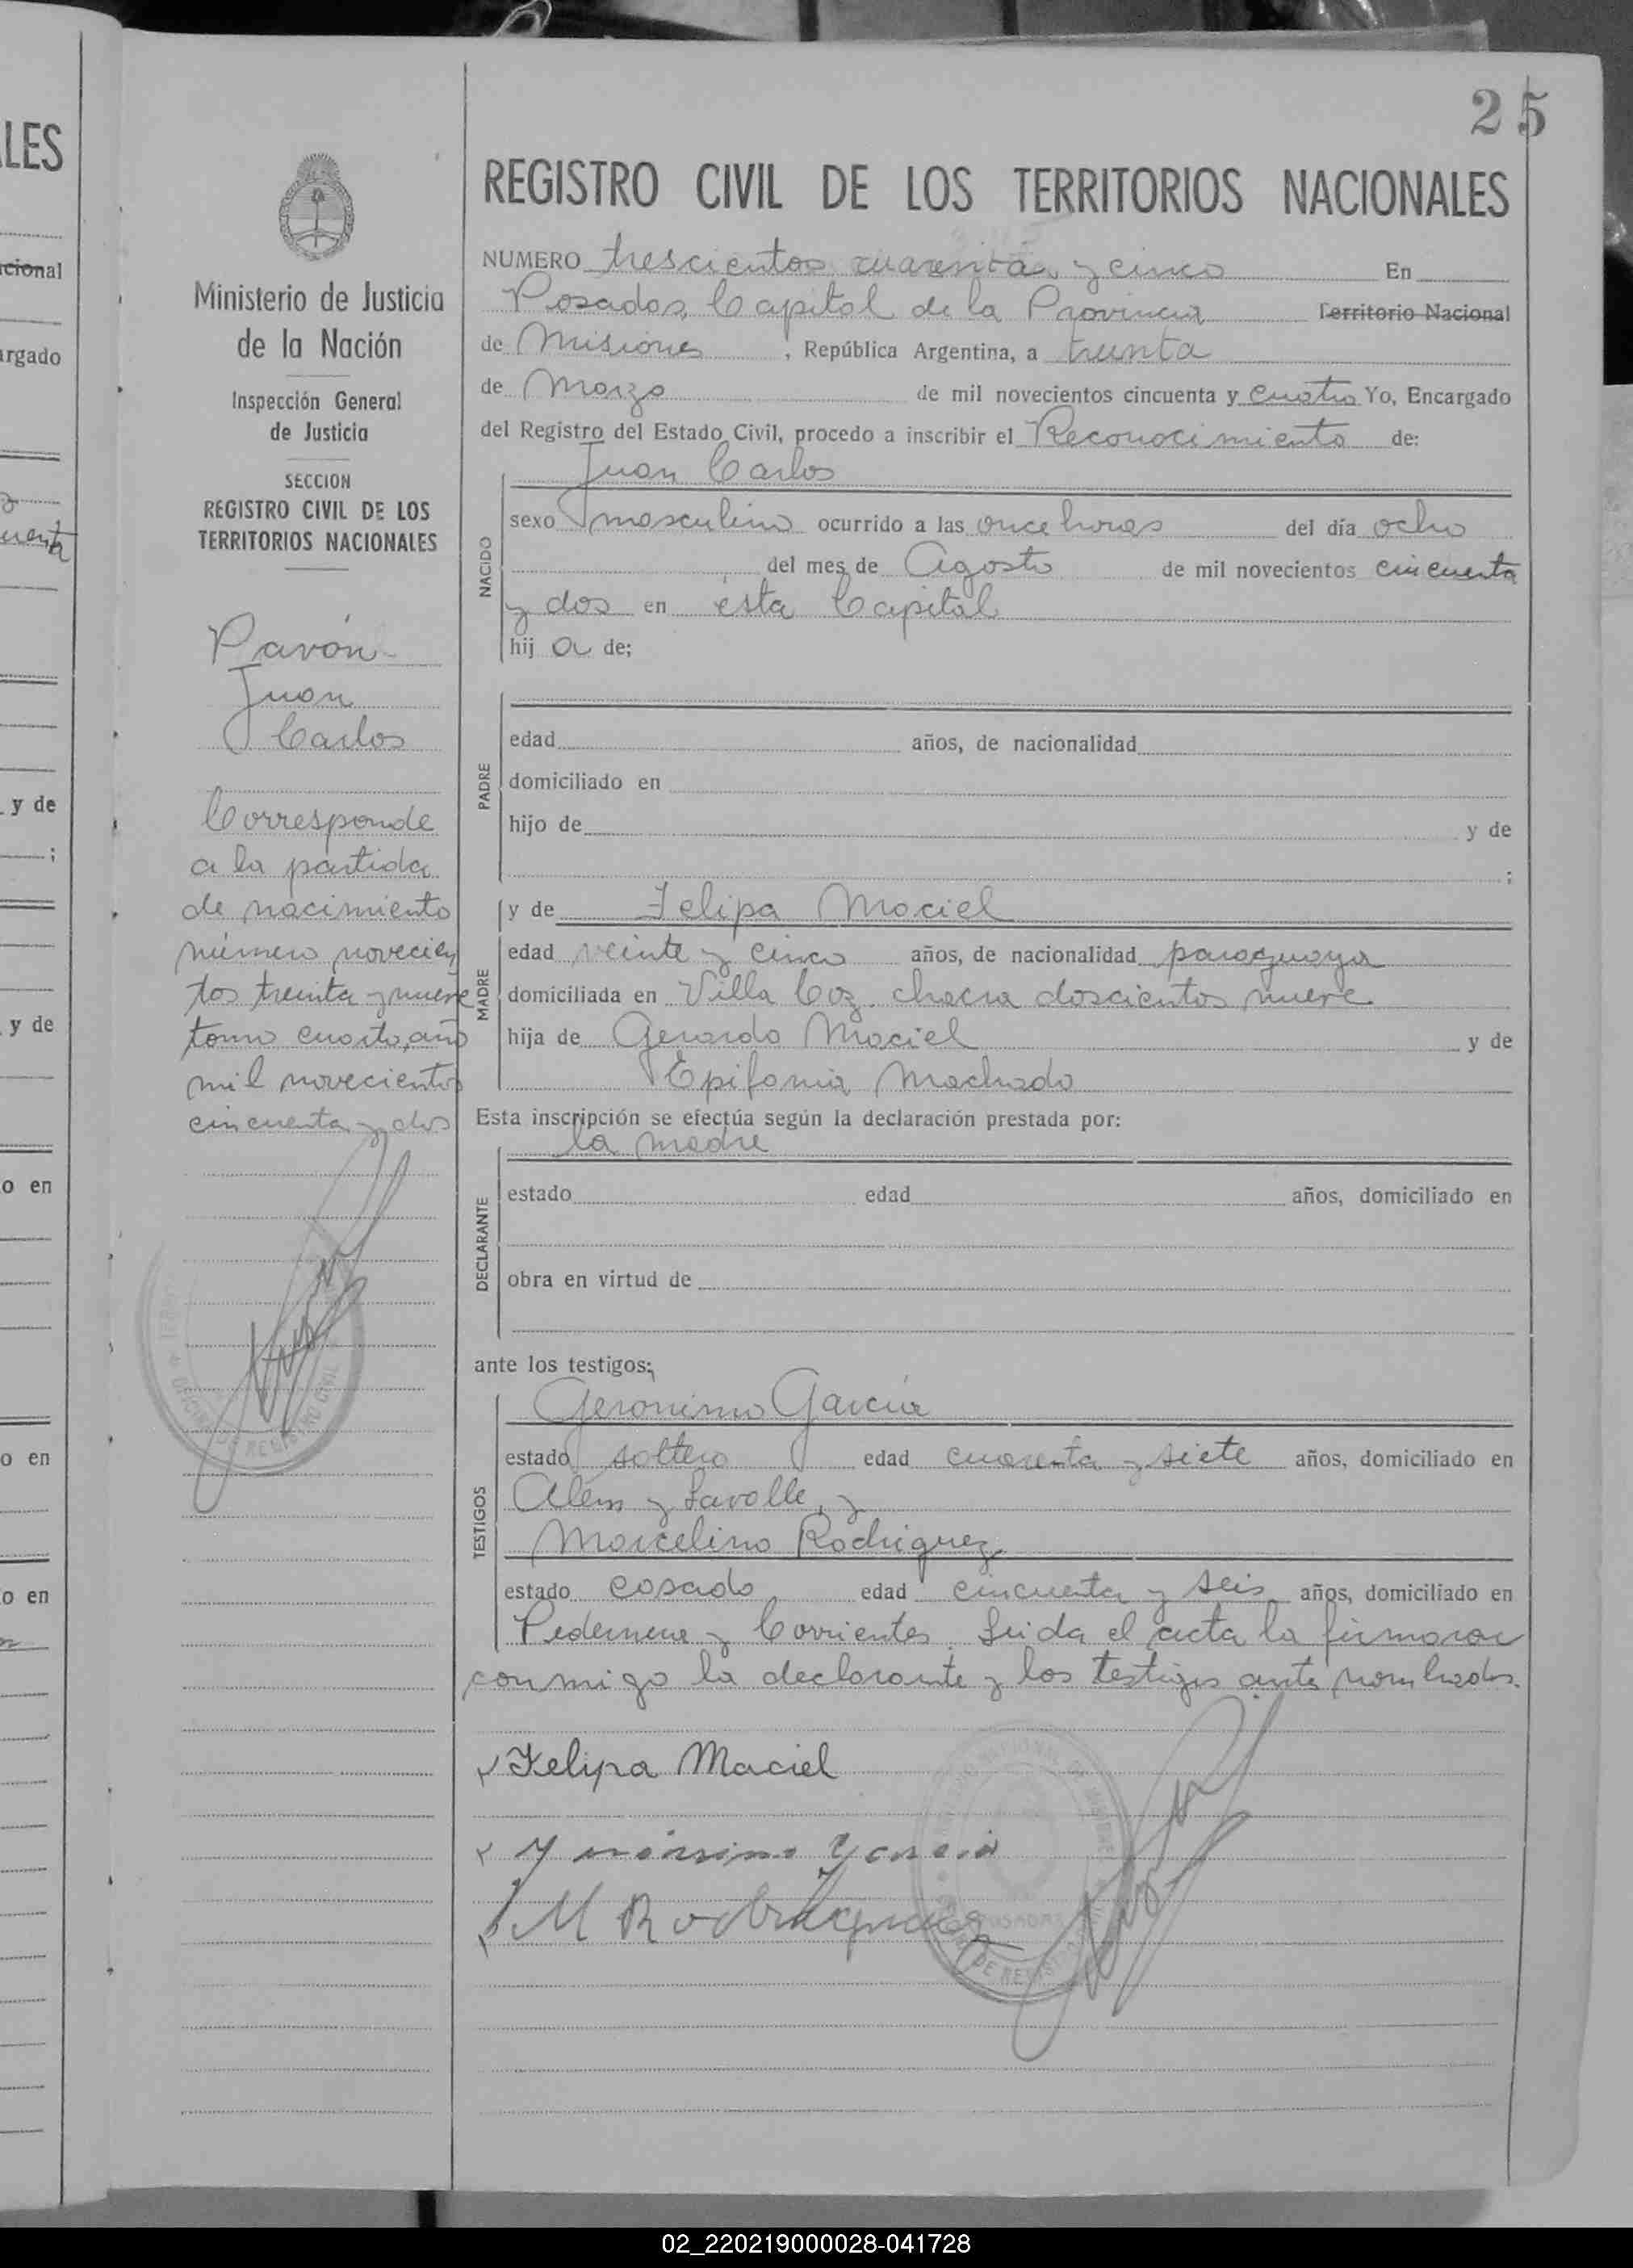 25
LES
cional
argado
y de
y de
o en
o en
o en
Ministerio de Justicia
de la Nación
Inspección General
de Justicia
SECCION
REGISTRO CIVIL DE LOS
TERRITORIOS NACIONALES
Pavón
Juan
Carlos
Corresponde
a la partida
de nacimiento
número novecien
tos treinta y nueve
tomo cuarto, año
mil novecientos
cincuenta y dos
REGISTRO CIVIL DE LOS TERRITORIOS NACIONALES
NUMERO trescientos cuarenta y cinco En
Posadas, Capital de la Provincia Territorio Nacional
de Misiones, República Argentina, a treinta
de Marzo de mil novecientos cincuenta y cuatro Yo, Encargado
del Registro del Estado Civil, procedo a inscribir el Reconocimiento de:
Juan Carlos
NACIDO
sexo masculino ocurrido a las once horas del día ocho
del mes de Agosto de mil novecientos cincuenta
y dos en ésta Capital
hij a de;
PADRE
edad años, de nacionalidad
domiciliado en
hijo de y de
;
y de Felipa Maciel
MADRE
edad veinte y cinco años, de nacionalidad paraguaya
domiciliada en Villa Coz. chacra doscientos nueve
hija de Gerardo Maciel y de
Epifania Machado
Esta inscripción se efectúa según la declaración prestada por:
la madre
DECLARANTE
estado edad años, domiciliado en
obra en virtud de
ante los testigos:
Geronimo Garcia
TESTIGOS
estado soltero edad cuarenta y siete años, domiciliado en
Alem y Lavalle, y
Marcelino Rodriguez
estado casado edad cincuenta y seis años, domiciliado en
Pedernera y Corrientes. Leida el acta la firmaron
conmigo la declarante y los testigos ante nombrados.
Felipa Maciel
M Rodriguez
02_220219000028-041728